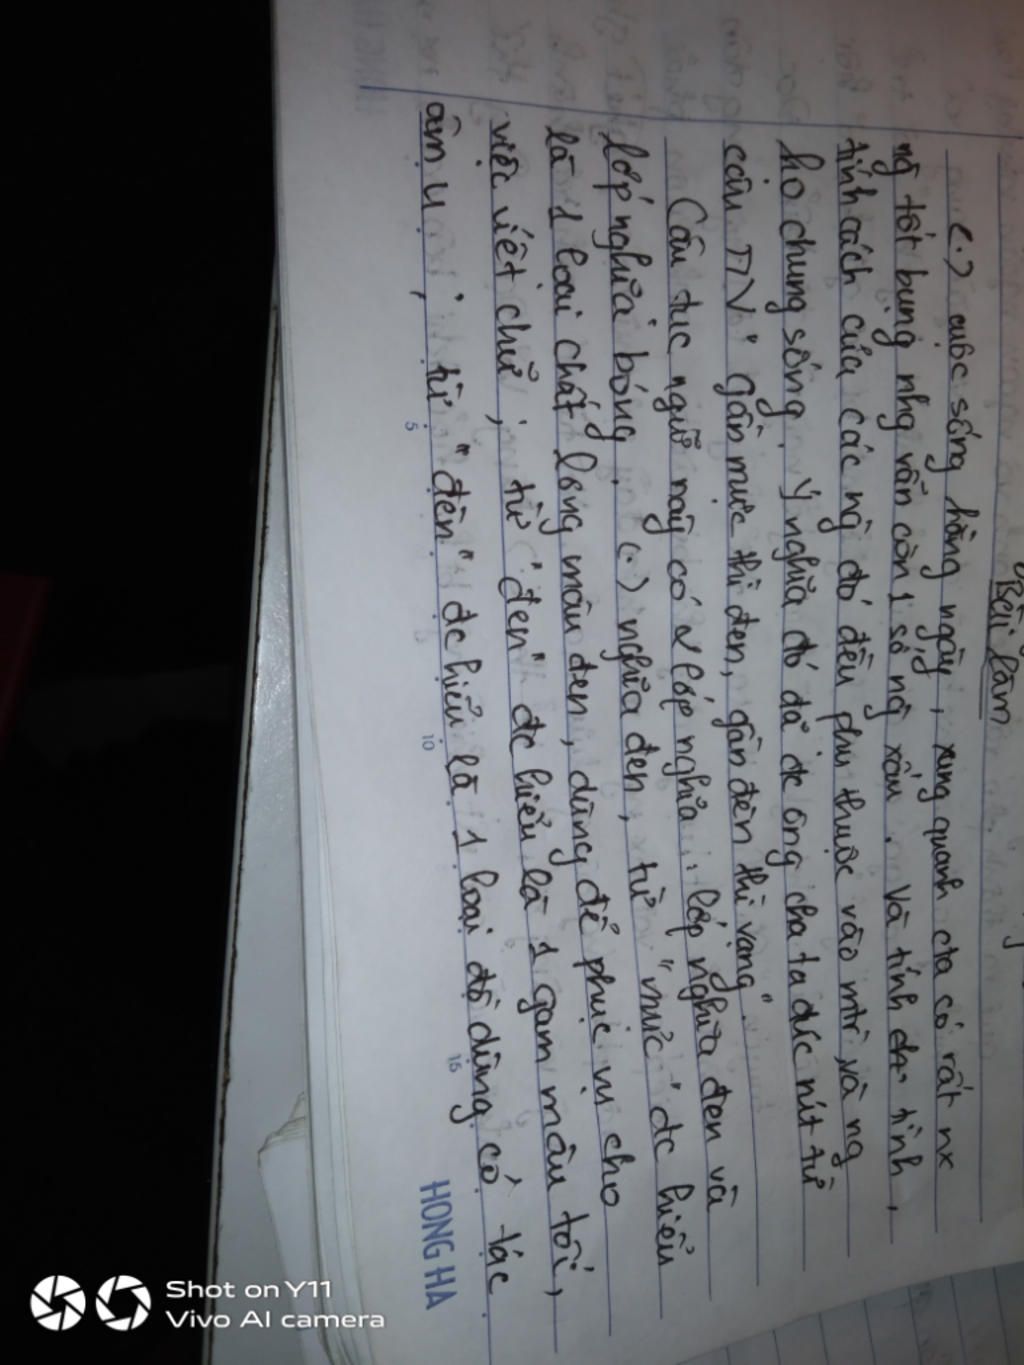 Bài làm
(.) cuộc sống hằng ngày, xung quanh cta có rất nx
ng tốt bụng nhg vẫn còn 1 số ng xấu. Và tính
tính cách của các ng đó đều phụ thuộc vào mtr và ng
họ chung sống. Ý nghĩa đó đã đc ông cha ta đúc rút từ
câu TN "gần mực thì đen, gần đèn thì rạng".
Câu tục ngữ này có 2 lớp nghĩa: lớp nghĩa đen và
lớp nghĩa bóng. (.) nghĩa đen, từ "mực" đc hiểu
là 1 loại chất lỏng màu đen, dùng để phục vụ cho
việc viết chữ; từ "đen" đc hiểu là 1 gam màu tối,
âm u; từ "đèn" đc hiểu là 1 loại đồ dùng có tác
5
10
15
HONG HA
Shot on Y11
Vivo AI camera